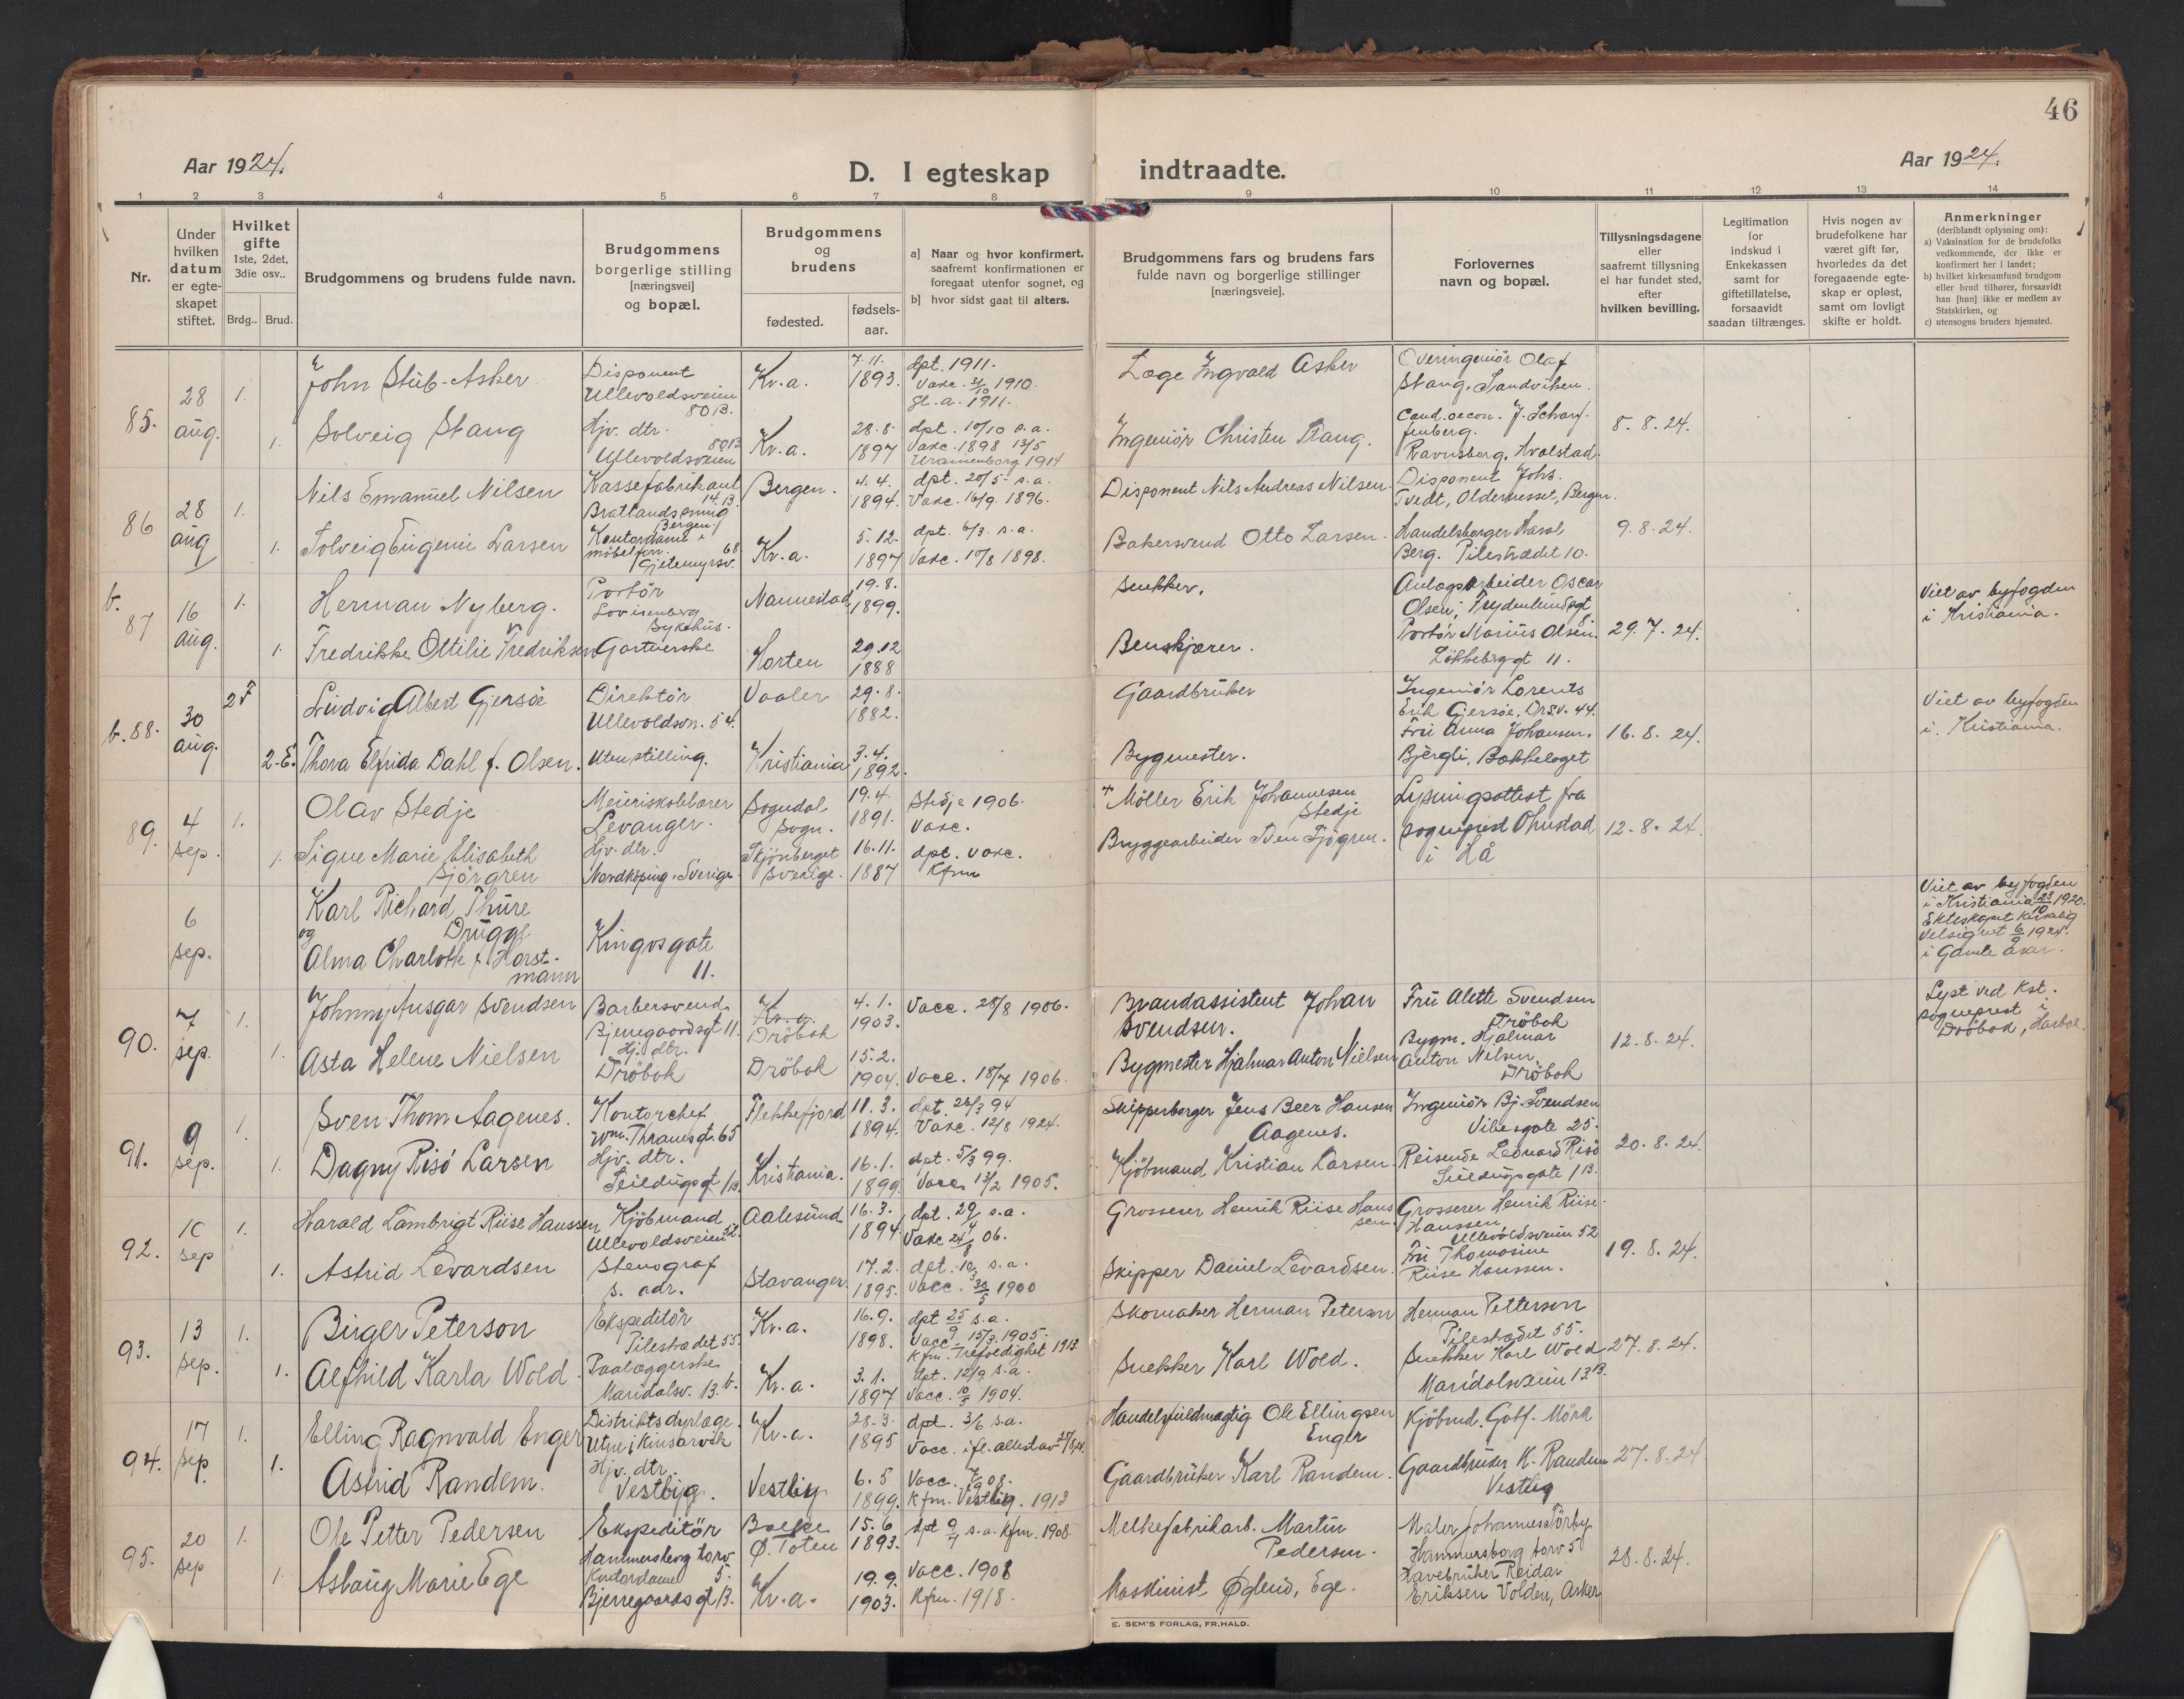 46
Aar 1924.
D. I egteskap indtraadte.
Aar 1924.
1 2 3 4 5 6 7 8 9 10 11 12 13 14
Nr.
Under
hvilken
datum
er egte-
skapet
stiftet.
Hvilket
gifte
1ste, 2det,
3die osv..
Brdg.. Brud.
Brudgommens og brudens fulde navn.
Brudgommens
borgerlige stilling
[næringsvei]
og bopæl.
Brudgommens
og
brudens
fødested.
fødsels-
aar.
a] Naar og hvor konfirmert,
saafremt konfirmationen er
foregaat utenfor sognet, og
b] hvor sidst gaat til alters.
Brudgommens fars og brudens fars
fulde navn og borgerlige stillinger
[næringsveie].
Forlovernes
navn og bopæl.
Tillysningsdagene
eller
saafremt tillysning
ei har fundet sted,
efter
hvilken bevilling.
Legitimation
for
indskud i
Enkekassen
samt for
giftetillatelse,
forsaavidt
saadan tiltrænges.
Hvis nogen av
brudefolkene har
været gift før,
hvorledes da det
foregaaende egte-
skap er opløst,
samt om lovligt
skifte er holdt.
Anmerkninger
(deriblandt oplysning om):
a) Vaksination for de brudefolks
vedkommende, der ikke er
konfirmert her i landet;
b) hvilket kirkesamfund brudgom
eller brud tilhører, forsaavidt
han [hun] ikke er medlem av
Statskirken, og
c) utensogns bruders hjemsted.
85.
28
aug.
1.
John Stub-Asker
Disponent
Ullevoldsveien
80 B.
Kr.a.
7.11.
1893.
dpt. 1911.
Vakc. 1910.
gl.a. 1911.
Læge Ingvald Asker
Overingeniör Olaf
Stang, Sandviken.
1.
Solveig Stang
Hjv. dtr.
80 B
Ullevoldsveien
Kr.a.
28.8.
1897
dpt. 10/10 s.a.
Vakc. 1898 13/5
Uranienborg 1914
Ingeniör Christen Stang.
Cand. oecon. J. Scharf-
fenberg.
Ravnsborg, Hvalstad.
8.8.24.
86
28
aug
1.
Nils Emanuel Nilsen
Kassefabrikant
14 B
Bratlandsprung
Bergen.
Bergen.
4.4.
1894.
dpt. 20/5 s.a.
Vakc. 16/9 1896.
Disponent Nils Andreas Nilsen.
Disponent Johs.
Tvedt, Oldernesset, Bergen.
1.
Solveig Eugenie Larsen
Kontordame i
möbelforr. 68
Gjetemyrsv.
Kr.a.
5.12.
1897
dpt. 6/3 s.a.
Vakc. 10/8 1898.
Bakersvend Otto Larsen.
Handelsborger Haral
Berg. Pilestrædet 10.
9.8.24.
b.
87
16
aug.
1.
Herman Nyberg.
Portör
Lovisenberg
Sykehus.
Nannestad
19.8.
1899.
Snekker.
Anlegsarbeider Oscar
Olsen, Frydenlundsgt
Viet av byfogden
i Kristiania.
1.
Fredrikke Ottilie Fredriksen
Gartnerske
Horten
29.12
1888
Benskjærer.
Portör Marius Olsen.
Lökkeberggt 11.
29.7.24.
b. 88.
30
aug.
2 F
Ludvig Albert Gjersöe
Direktör
Ullevoldsvn. 54.
Vaaler
29.8.
1882.
Gaardbruker
Ingeniör Lorents
Erik Gjersöe, Drsv. 44.
Viet av byfogden
i Kristiania.
2-E.
Thora Elfrida Dahl f. Olsen.
Uten stilling.
Kristiania
3.4.
1892.
Bygmester.
Fru Anna Johansen.
Bjergli, Bækkelaget
16.8.24.
89.
4
sep.
1.
Olav Stedje
Meieriskolelærer
Levanger.
Sogndal
Sogn.
19.4.
1891.
Stedje 1906.
Vakc.
+ Möller Erik Johannesen
Stedje
Lysningsattest fra
1.
Signe Marie Elisabeth
Sjörgren
Hjv. dtr.
Nordköping, Sverige
Skjönberget
Sverige.
16.11.
1887
dpt. vakc.
Kfrm
Bryggearbeider Sven Sjögren.
sogneprest Ohnstad
i Lå
12.8.24.
6
sep.
Karl Richard Thure
og Drugge
Alma Charlotte f. Horst-
mann
Kingosgate
11.
Viet av byfogden
i Kristiania 28/10 1920.
Ekteskapet kirkelig
velsignet 6/9 1924.
i Gamle Aker.
90.
7
sep.
1.
Johnny Ansgar Svendsen
Barbersvend
Bjerregaardsgt 11.
Kr.a.
Dröbak
4.1.
1903.
Vacc. 28/8 1906.
Brandassistent Johan
Svendsen.
Fru Alette Svendsen
Dröbak
Lyst ved Kst.
sogneprest i
Dröbak,
1.
Asta Helene Nielsen
Hj. dtr.
Dröbak
Dröbak
15.2.
1904.
Vacc. 18/7 1906.
Bygmester Hjalmar Anton Nielsen
Bygm. Hjalmar
Anton Nilsen
Dröbak
12.8.24.
91.
9
sep.
1.
Sven Thom Aagenes.
Kontorchef
Wm. Thranesgt. 65
Flekkefjord
11.3.
1894.
dpt. 26/3 94
Vakc. 12/8 1924.
Skipperborger Jens Beer Hansen
Aagenes.
Ingeniör Bj. Svendsen
Vibesgate 25.
1.
Dagny Risö Larsen
Hjv. dtr.
Seildugsgt 1 B.
Kristiania.
16.1.
1899.
dpt. 5/3 99.
Vakc. 13/2 1905.
Kjöbmand Kristian Larsen.
Reisende Leonard Risö
Seildugsgate 1 B.
20.8.24.
92.
10
sep
1.
Harald Lambrigt Riise Hanssen
Kjöbmand
Ullevoldsveien 52.
Aalesund
16.3.
1894.
dpt. 29/4 s.a.
Vakc 24/8 06.
Grosserer Henrik Riise Hans
sen.
Grosserer Henrik Riise-
Hanssen
Ullevoldsveien 52
1.
Astrid Levardsen
Stenograf
s. adr.
Stavanger.
17.2.
1895.
dpt. 10/3 s.a.
Vacc. 30/5 1900
Skipper Daniel Levardsen.
Fru Thomasine
Riise Hanssen.
19.8.24.
93.
13
sep.
1.
Birger Peterson
Ekspeditör
Pilestrædet 55.
Kr.a.
16.9.
1898.
dpt 25/9 s.a.
Vacc. 15/3 1905.
Kfm. Trefoldighet 1913
Skomaker Herman Peterson
Herman Petterson
Pilestrædet 55.
1.
Alfhild Karla Wold.
Paalæggerske
Maridalsv. 13 b.
Kr.a.
3.1.
1897
dpt. 12/9 s.a.
Vacc. 1904.
Snekker Karl Wold.
Snekker Karl Wold
Maridalsveien 13 B.
27.8.24.
94.
17
sep
1.
Elling Ragnvald Enger
Distriktsdyrlæge.
Utne i Kinsarvik
Kr.a.
28.3.
1895
dpt. 3/6 s.a.
Vacc. ifl. attest av
Handelsfuldmægtig Ole Ellingsen
Enger
Kjöbmd. Golf. Mörk
1.
Astrid Randem.
Hjv. dtr.
Vestby.
Vestby
6.5
1899.
Vacc. 08.
Kfm. Vestby. 1913
Gaardbruker Karl Randem.
Gaardbruker K. Randem
Vestby
27.8.24
95.
20
sep
1.
Ole Petter Pedersen
Ekspeditör
Hammersborg torv
5.
Balke
Ö. Toten
15.6
1893.
dpt 9/7 s.a. Kfm. 1908.
Melkefabrikarb. Martin
Pedersen.
Maler Johannes Törby
Hammersborg torv 5
1.
Aslaug Marie Ege
Kontordame
Bjerregaardsgt 13.
Kr.a.
19.9.
1903.
Vacc. 1908
Kfm. 1918.
Maskinist Öglend, Ege.
Havebruker Reidar
Eriksen Volden, Asker
28.8.24.
E. SEM'S FORLAG, FR.HALD.